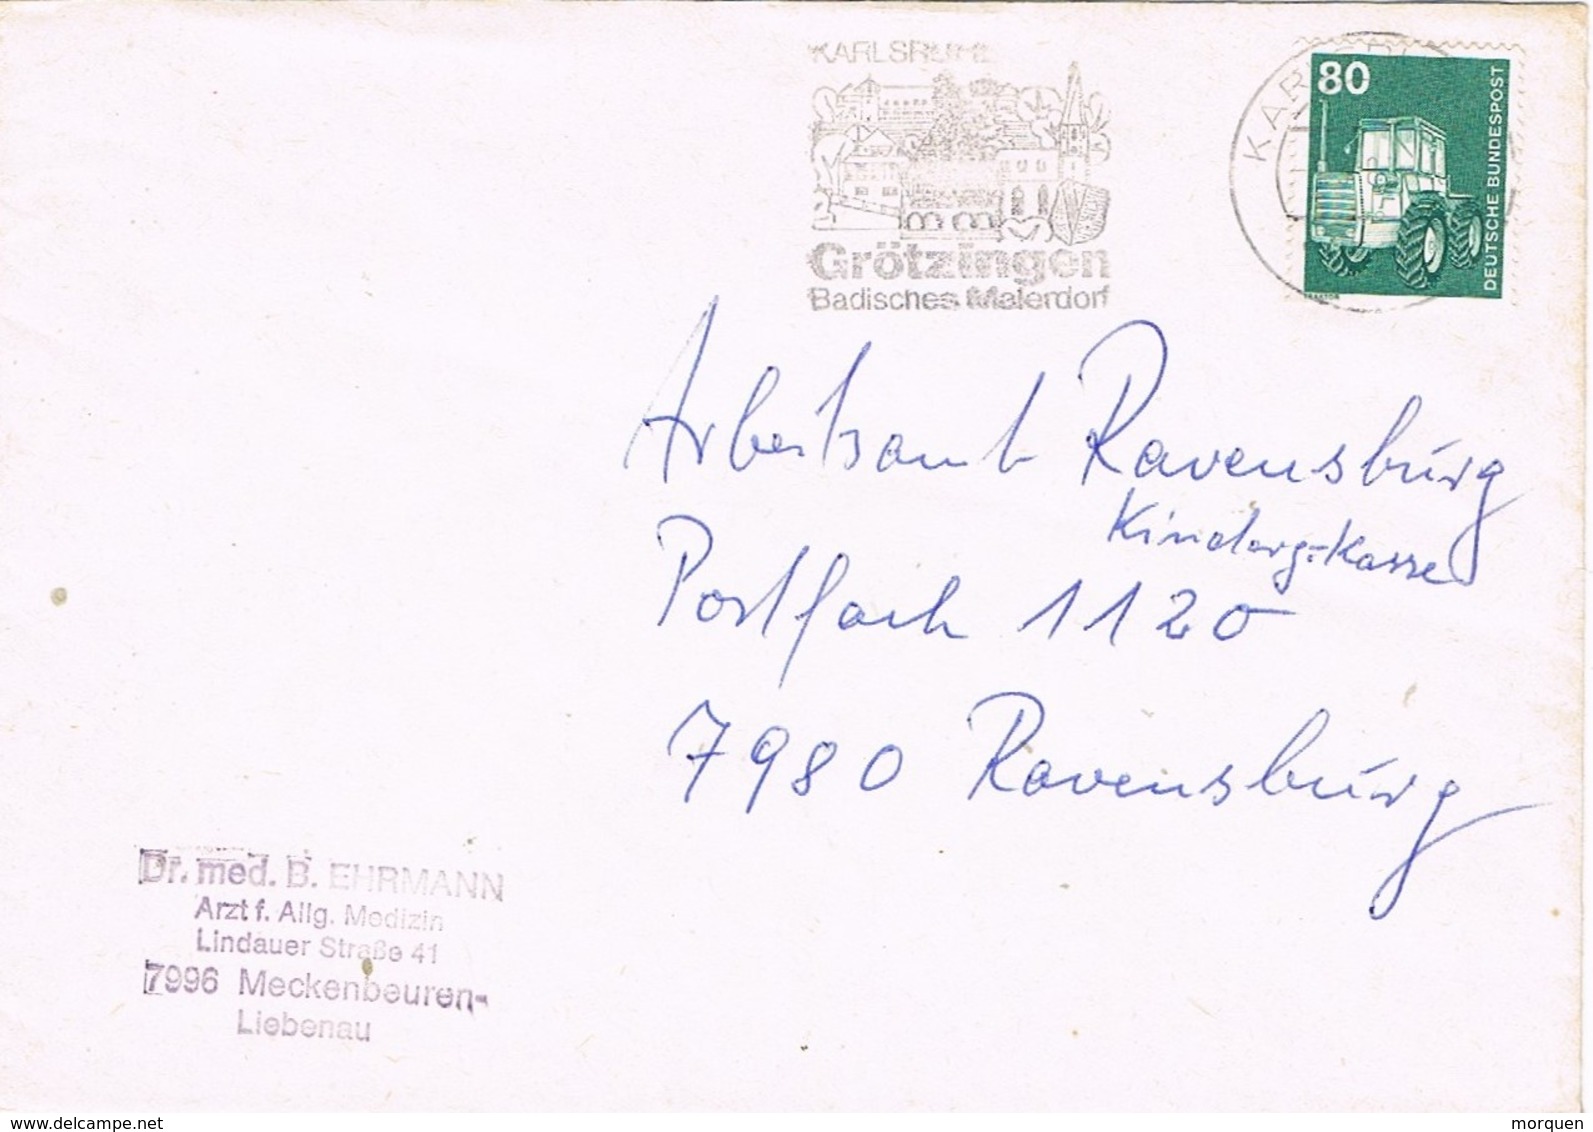 KARLSRUHE
Grötzingen
Badisches Malerdorf
80
DEUTSCHE BUNDESPOST
TRAKTOR
Arbeitsamt Ravensburg
Kinderg.-Kasse
Postfach 1120
7980 Ravensburg
Dr. med. B. EHRMANN
Arzt f. Allg. Medizin
Lindauer Straße 41
7996 Meckenbeuren-
Liebenau
www.delcampe.net
morquen